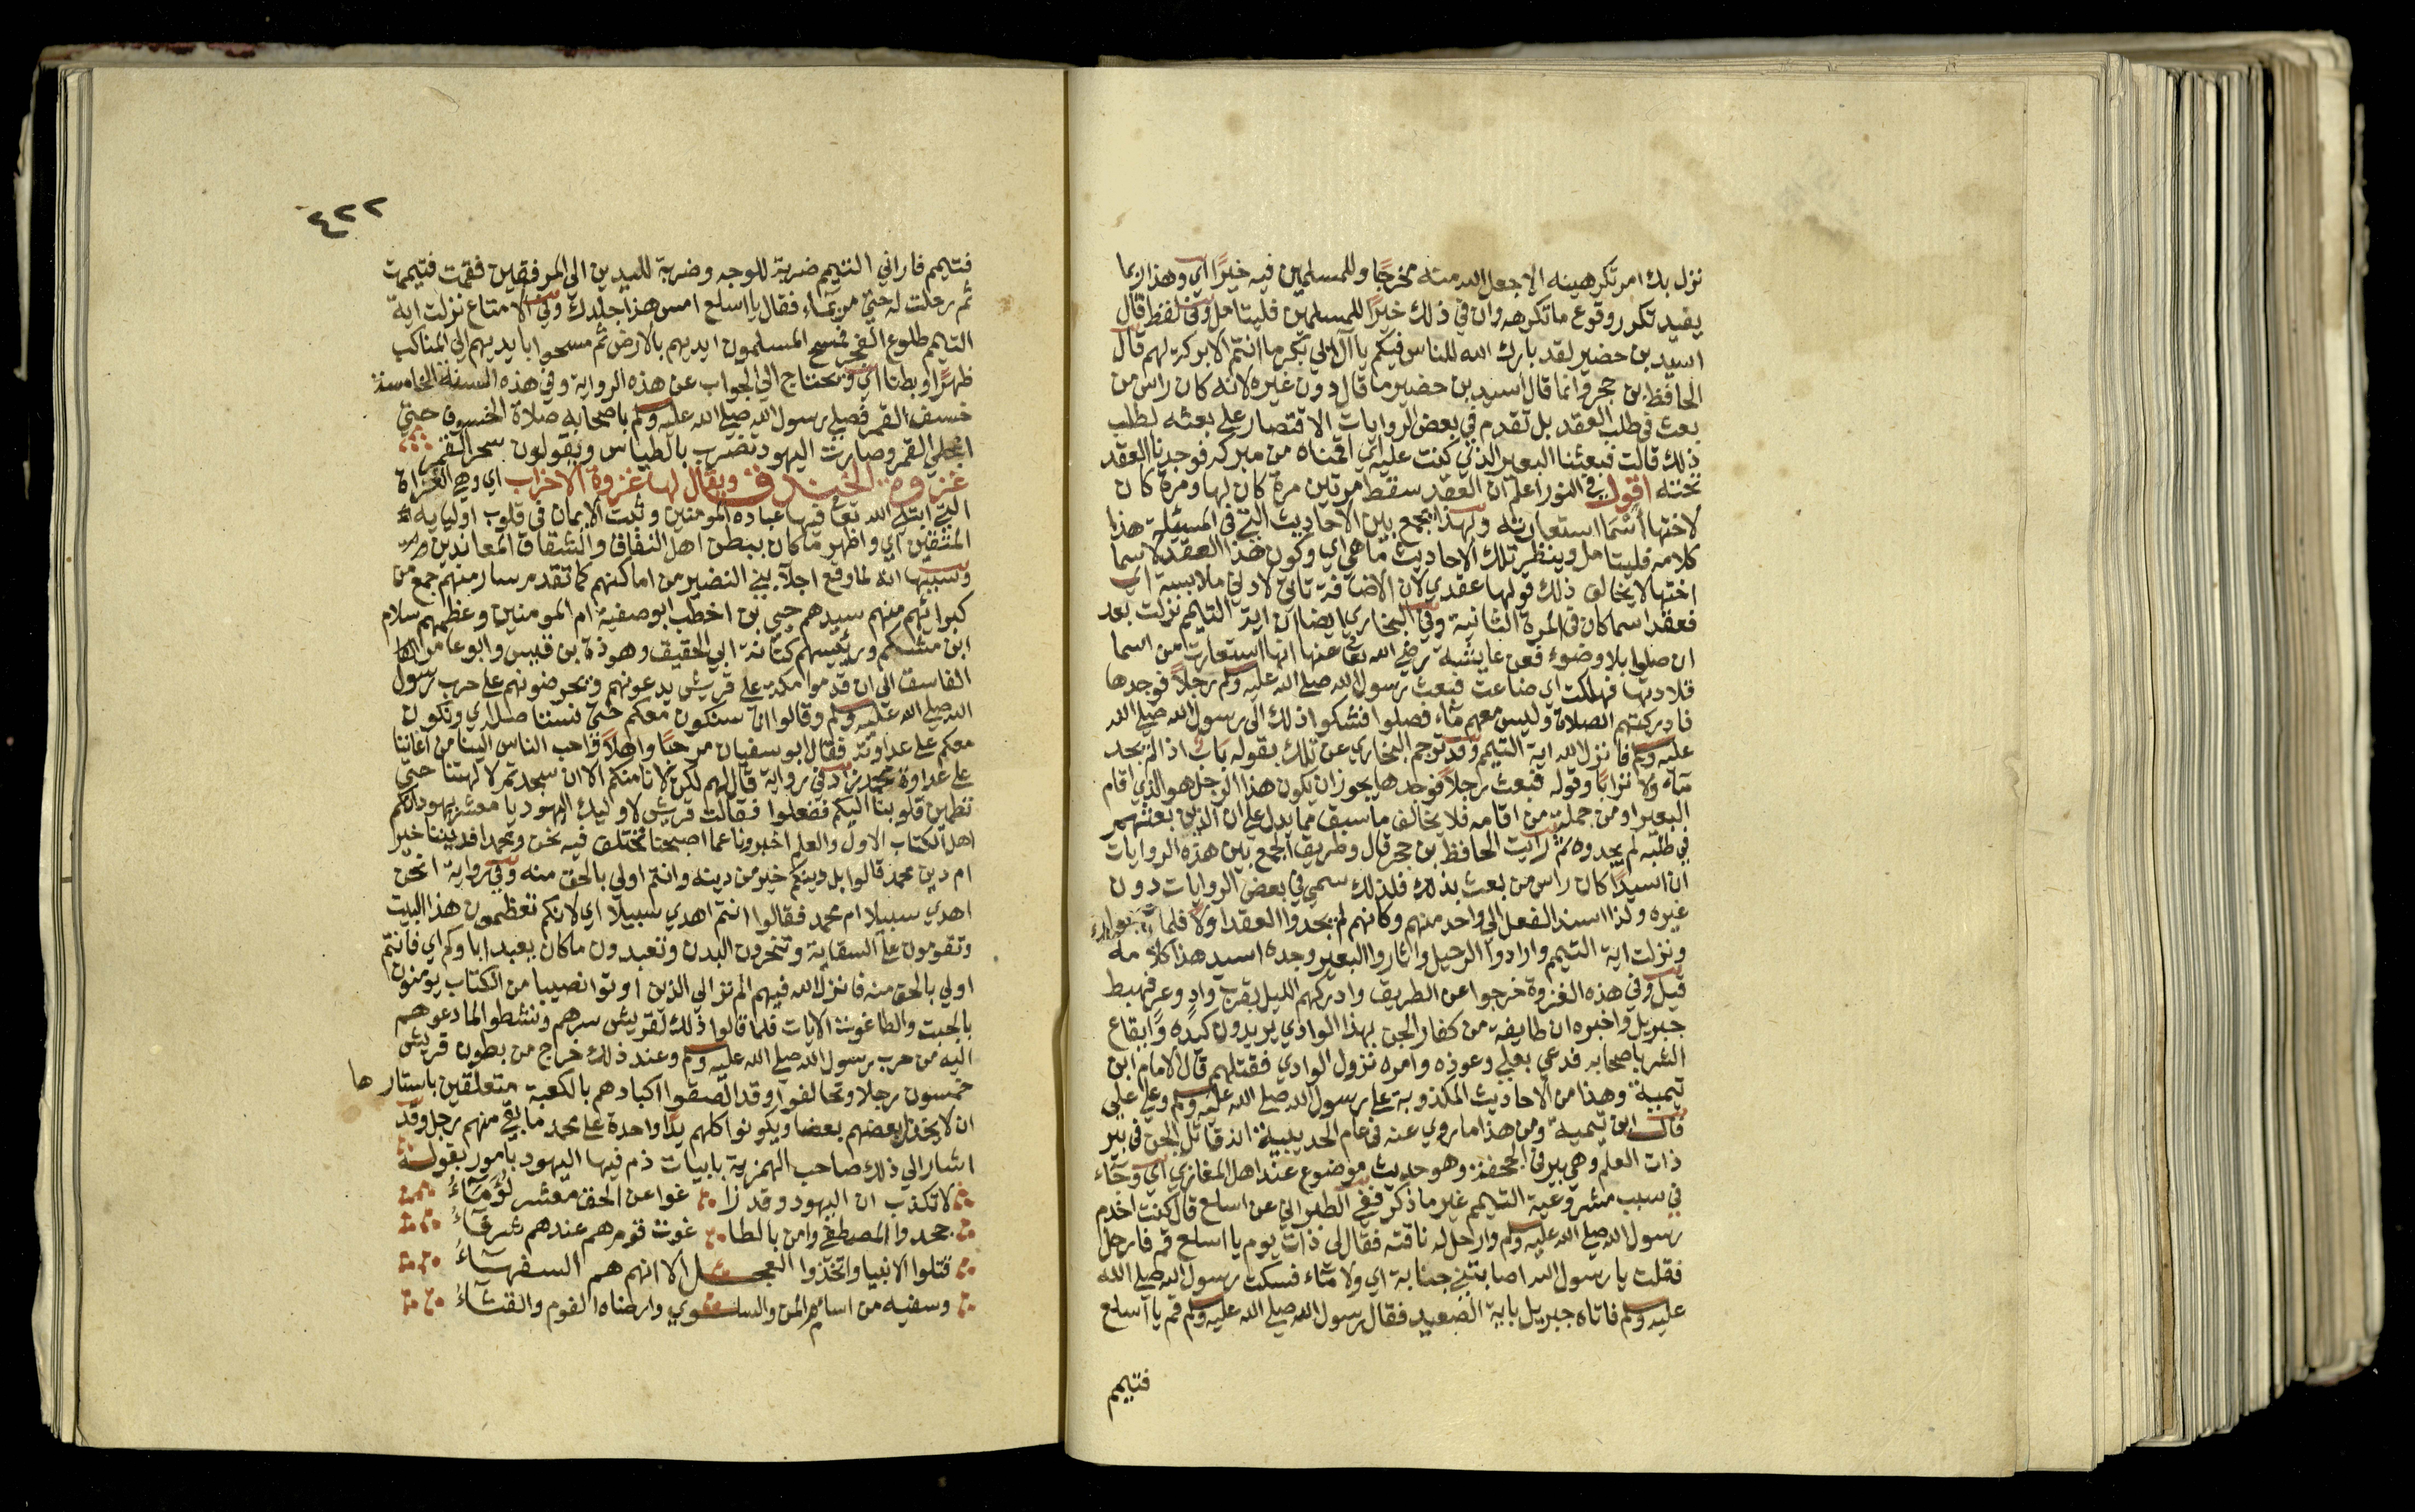 نزل بك امر تكرهينه الا جعل الله منه مخرجا وللمسلمين فيه خيرا اي وهذا ربما
يفيد تكرر وقوع ما تكرهه وان في ذلك خيرا للمسلمين فليتامل وفي لفظ قال
اسيد بن حضير لقد بارك الله للناس فيكم يا آل ابي بكر ما انتم الا بركة لهم قال
الحافظ بن حجر وانما قال اسيد بن حضير ما قال دون غيره لانه كان راس من
بعث في طلب العقد بل تقدم في بعض الروايات الاقتصار على بعثه لطلب
ذلك قالت فبعثنا البعير الذي كنت عليه اي اقمناه من مبركه فوجدنا العقد
تحته اقول في النور اعلم ان العقد سقط مرتين مرة كان لها ومرة كان
لاختها أسما استعارته ولهذا يجمع بين الاحاديث التي في المسئلة هذا
كلامه فليتامل وينظر تلك الاحاديث ما هي اي وكون هذا العقد لاسما
اختها لا يخالف ذلك قولها عقدي لان الاضافة تاتي لادنى ملابسة اي
فعقد اسما كان في المرة الثانية وفي البخاري ايضا ان اية التيمم نزلت بعد
ان صلوا بلا وضوء فعن عايشة رضي الله تعالى عنها انها استعارت من اسما
قلادتها فهلكت اي ضاعت فبعث رسول الله صلى الله عليه وسلم رجلا فوجدها
فادركتهم الصلاة وليس معهم ماء فصلوا فشكوا ذلك الى رسول الله صلى الله
عليه وسلم فانزل الله اية التيمم وقد ترجم البخاري عن تلك بقوله باب اذا لم يجد
ماء ولا ترابا وقوله فبعث رجلا فوجدها يجوز ان يكون هذا الرجل هو الذي اقام
البعير او من جملة من اقامه فلا يخالف ما سبق مما يدل على ان الذين بعثهم
في طلبه لم يجدوه ثم رايت الحافظ بن حجر قال وطريق الجمع بين هذه الروايات
ان اسيدا كان راس من بعث بذلك فلذلك سمي في بعض الروايات دون
غيره ولذا اسند الفعل الى واحد منهم وكانهم لم يجدوا العقد اولا فلما
ونزلت اية التيمم وارادوا الرحيل واثاروا البعير وجده اسيد هذا كلامه
قيل وفي هذه الغزوة خرجوا عن الطريق وادركهم الليل بقرب واد وعر فهبط
جبريل واخبره ان طايفة من كفار الجن بهذا الوادي يريدون كيده وايقاع
الشر باصحابه فدعى بعلي وعوذه وامره نزول الوادي فقتلهم قال الامام ابن
تيمية وهذا من الاحاديث المكذوبة على رسول الله صلى الله عليه وسلم وعلى علي
قال ابن تيمية ومن هذا ما روي عنه في عام الحديبية انه قاتل الجن في بير
ذات العلم وهي بير في الجحفة وهو حديث موضوع عند اهل المغازي اي وجاء
في سبب مشروعية التيمم غير ما ذكر ففي الطبراني عن اسلع قال كنت اخدم
رسول الله صلى الله عليه وسلم وارحل له ناقته فقال لي ذات يوم يا اسلع قم فارحل
فقلت يا رسول الله اصابتني جنابة اي ولا ماء فسكت رسول الله صلى الله
عليه وسلم فاتاه جبريل باية الصعيد فقال رسول الله صلى الله عليه وسلم قم يا اسلع
فتيمم
٤٢٢
فتيمم فاراني التيمم ضربة للوجه وضربة لليدين الى المرفقين فقمت فتيممت
ثم رحلت له حتى مر بماء فقال يا اسلع امس هذا جلدك وفي الامتاع نزلت اية
التيمم طلوع الفجر فمسح المسلمون ايديهم بالارض ثم مسحوا بايديهم الى المناكب
ظهرا وبطنا اي ويحتاج الى الجواب عن هذه الرواية وفي هذه السنة الخامسة
خسف القمر فصلى رسول الله صلى الله عليه وسلم باصحابه صلاة الخسوف حتى
انجلى القمر وصارت اليهود تضرب بالطساس ويقولون سحر القمر
غزوة الخندق ويقال لها غزوة الاحزاب اي وهي الغزاة
التي ابتلى الله تعالى فيها عباده المومنين وثبت الايمان في قلوب اوليايه
المتقين اي واظهر ما كان يبطن اهل النفاق والشقاق المعاندين
وسببها انه لما وقع اجلاء بني النضير من اماكنهم كما تقدم سار منهم جمع من
كبرائهم منهم سيدهم حيي بن اخطب ابو صفية ام المومنين وعظيمهم سلام
ابن مشكم ورئيسهم كنانة ابي الحقيق وهوذة بن قيس وابو عامر
الفاسق الى ان قدموا مكة على قريش يدعونهم ويحرضونهم على حرب رسول
الله صلى الله عليه وسلم وقالوا انا سنكون معكم حتى نستاصله اي ونكون
معكم على عداوته فقال ابو سفيان مرحبا واهلا واحب الناس الينا من اعاننا
على عداوة محمد زاد في رواية قال لهم لكن لا نامنكم الا ان سجدتم لالهتنا حتى
تطمين قلوبنا اليكم ففعلوا فقالت قريش لاوليك اليهود يا معشر يهود انكم
اهل الكتاب الاول والعلم اخبرونا عما اصبحنا نختلف فيه نحن ومحمد افديننا خير
ام دين محمد قالوا بل دينكم خير من دينه وانتم اولى بالحق منه وفي رواية انحن
اهدي سبيلا ام محمد فقالوا انتم اهدي سبيلا اي لانكم تعظمون هذا البيت
وتقومون على السقاية وتنحرون البدن وتعبدون ما كان يعبد اباوكم اي فانتم
اولى بالحق منه فانزل الله فيهم الم تر الى الذين اوتوا نصيبا من الكتاب يومنون
بالجبت والطاغوت الايات فلما قالوا ذلك لقريش سرهم ونشطوا لما دعوهم
اليه من حرب رسول الله صلى الله عليه وسلم وعند ذلك خرج من بطون قريش
خمسون رجلا وتحالفوا وقد الصقوا اكبادهم بالكعبة متعلقين باستارها
ان لا يخذل بعضهم بعضا ويكونوا كلهم يدا واحدة على محمد ما بقي منهم رجل وقد
اشار الى ذلك صاحب الهمزية بابيات ذم فيها اليهود بامور بقوله
لا تكذب ان اليهود وقد زا غوا عن الحق معشر لؤماء
جحدوا المصطفى وامن بالطا غوت قوم هم عندهم شرفاء
قتلوا الانبيا واتخذوا العجل الا انهم هم السفهاء
وسفيه من اساه المن والسلوي وارضاه الفوم والقثاء